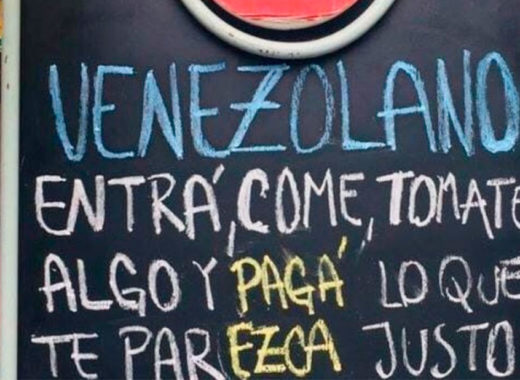 VENEZOLANO
ENTRÁ, COME, TOMATE
ALGO Y PAGÁ LO QUE
TE PAREZCA JUSTO